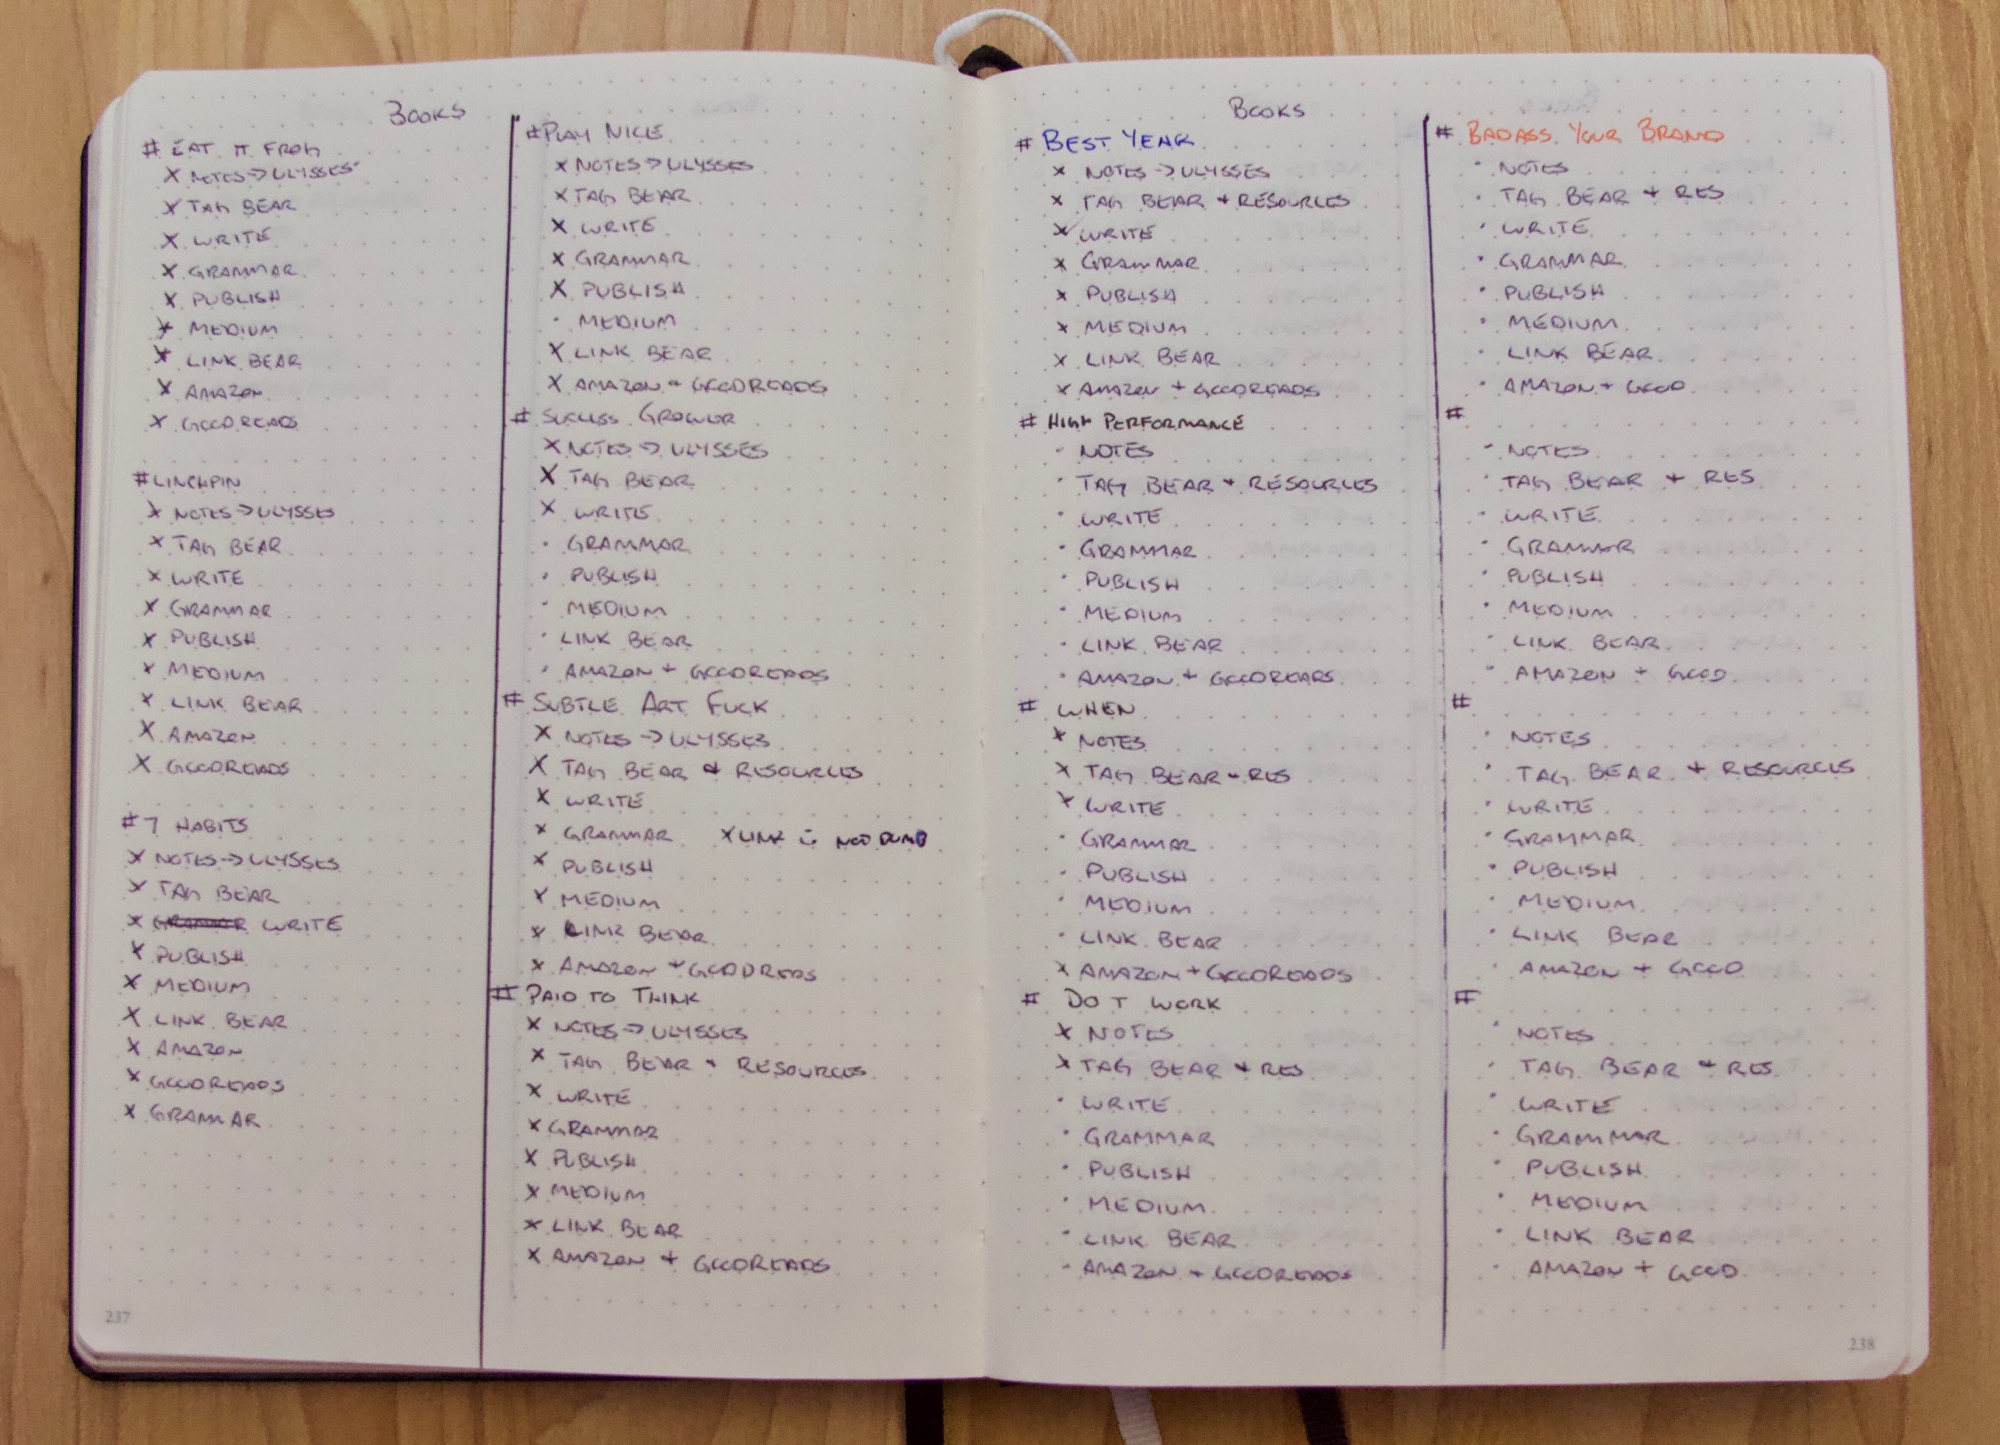 BOOKS
# EAT T FROG
X NOTES -> ULYSSES
X TAG BEAR
X WRITE
X GRAMMAR
X PUBLISH
X MEDIUM
X LINK BEAR
X AMAZON
X GOODREADS
# LINCHPIN
X NOTES -> ULYSSES
X TAG BEAR
X WRITE
X GRAMMAR
X PUBLISH
X MEDIUM
X LINK BEAR
X AMAZON
X GOODREADS
# 7 HABITS
X NOTES -> ULYSSES
X TAG BEAR
X GRAMMAR WRITE
X PUBLISH
X MEDIUM
X LINK BEAR
X AMAZON
X GOODREADS
X GRAMMAR
237
# PLAY NICE
X NOTES -> ULYSSES
X TAG BEAR
X WRITE
X GRAMMAR
X PUBLISH
· MEDIUM
X LINK BEAR
X AMAZON + GOODREADS
# SUCCESS GROWER
X NOTES -> ULYSSES
X TAG BEAR
X WRITE
· GRAMMAR
· PUBLISH
· MEDIUM
· LINK BEAR
· AMAZON + GOODREADS
# SUBTLE ART FUCK
X NOTES -> ULYSSES
X TAG BEAR + RESOURCES
X WRITE
X GRAMMAR X LINK NOT
X PUBLISH
X MEDIUM
X LINK BEAR
X AMAZON + GOODREDS
# PAID TO THINK
X NOTES -> ULYSSES
X TAG BEAR + RESOURCES
X WRITE
X GRAMMAR
X PUBLISH
X MEDIUM
X LINK BEAR
X AMAZON + GOODREADS
BOOKS
# BEST YEAR
X NOTES -> ULYSSES
X TAG BEAR + RESOURCES
X WRITE
X GRAMMAR
X PUBLISH
X MEDIUM
X LINK BEAR
X AMAZON + GOODREADS
# HIGH PERFORMANCE
· NOTES
· TAG BEAR + RESOURCES
· WRITE
· GRAMMAR
· PUBLISH
· MEDIUM
· LINK BEAR
· AMAZON + GOODREADS
# WHEN
X NOTES
X TAG BEAR + RES
X WRITE
· GRAMMAR
· PUBLISH
· MEDIUM
· LINK BEAR
X AMAZON + GOODREADS
# DO T WORK
X NOTES
X TAG BEAR + RES
· WRITE
· GRAMMAR
· PUBLISH
· MEDIUM
· LINK BEAR
· AMAZON + GOODREADS
# BADASS YOUR BRAND
· NOTES
· TAG BEAR + RES
· WRITE
· GRAMMAR
· PUBLISH
· MEDIUM
· LINK BEAR
· AMAZON + GOOD
#
· NOTES
· TAG BEAR + RES
· WRITE
· GRAMMAR
· PUBLISH
· MEDIUM
· LINK BEAR
· AMAZON + GOOD
#
· NOTES
· TAG BEAR + RESOURCES
· WRITE
· GRAMMAR
· PUBLISH
· MEDIUM
· LINK BEAR
· AMAZON + GOOD
#
· NOTES
· TAG BEAR + RES
· WRITE
· GRAMMAR
· PUBLISH
· MEDIUM
· LINK BEAR
· AMAZON + GOOD
238